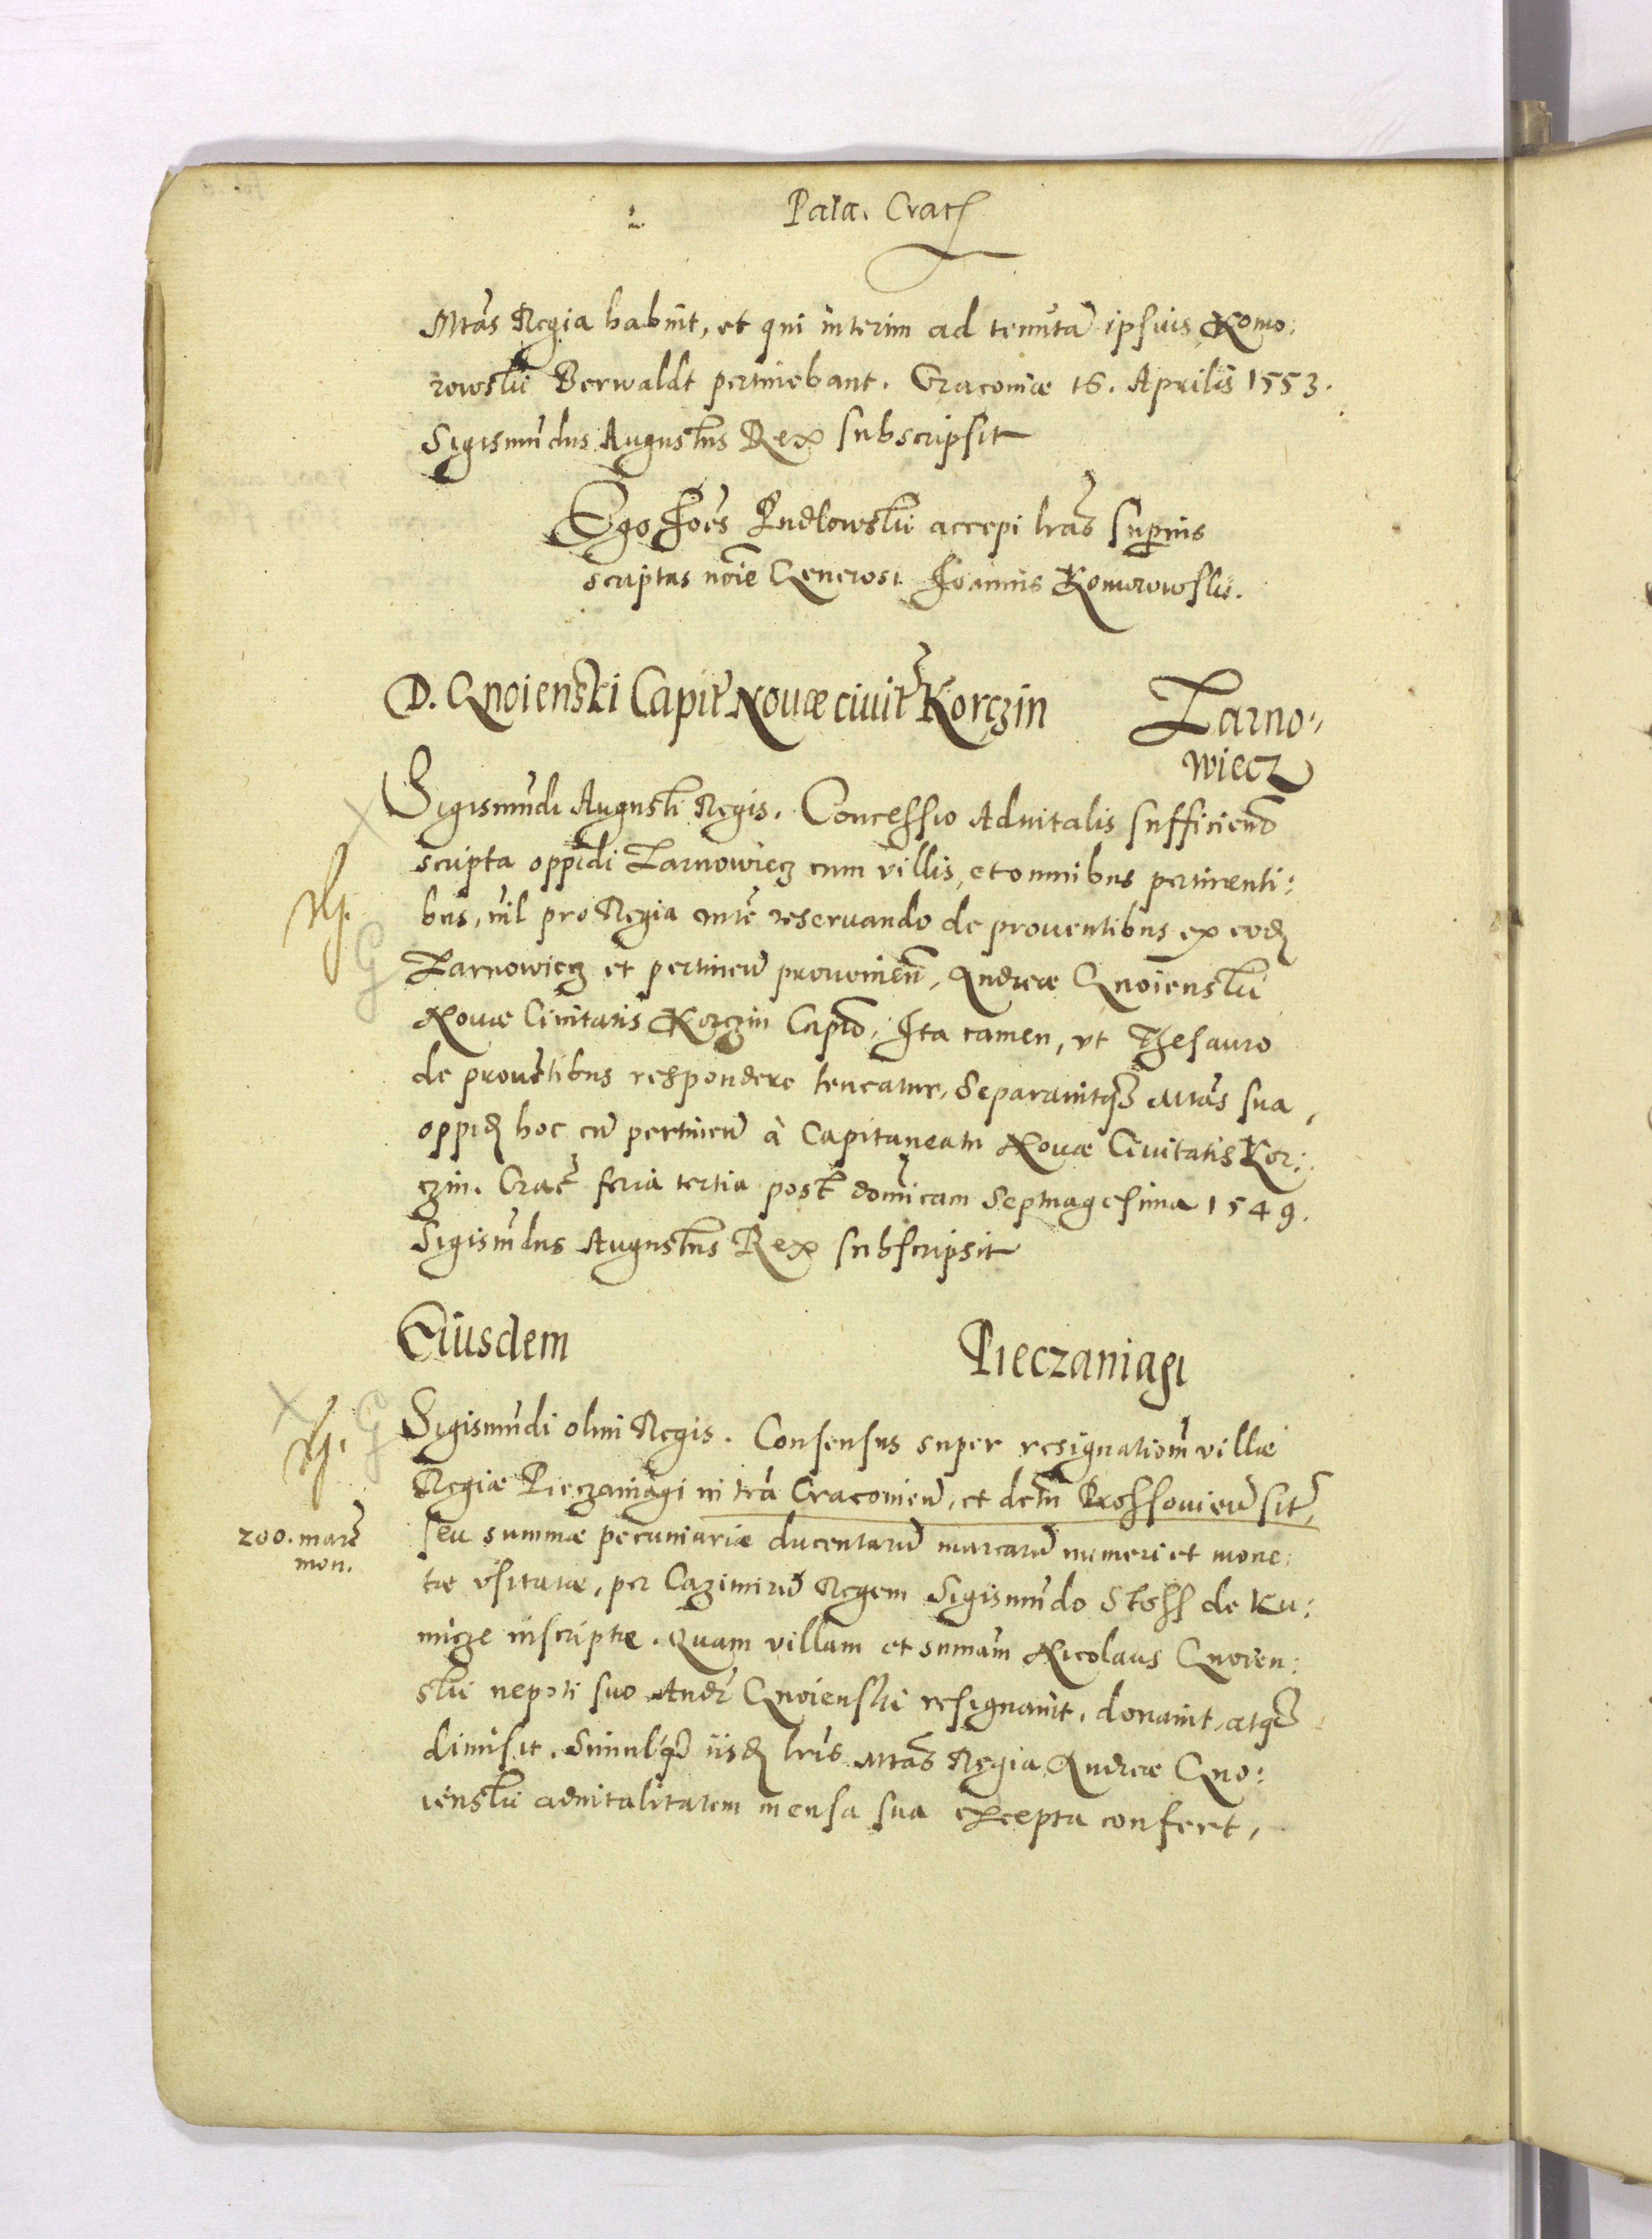 Pala. Crac
Mtas Regia habuit, et qui interim ad tenutā ipsius Komo:
rowskii Berwaldt pertinebant. Cracoviæ 16. Aprilis 1553.
Sigismūdus Augustus Rex subscripsit
Ego Joēs Pudlowskii accepi lrās superius
scriptas noīe Generosi Joannis Komorowskii.
D. Gnoienski Capit Novæ civit Korczin
Zarno=
wiecz
Sigismūdi Augusti Regis. Concessio Aduitalis sufficien
scripta oppidi Zarnowiecz cum villis, et omnibus pertinenti:
bus, nil pro Regia mte reseruando de prouentibus ex eod
Zarnowiecz et pertinen prouenien, Andreæ Gnoienskii
Nouæ Ciuitatis Korczin Capio, Ita tamen, vt Thesauro
de prouētibus respondere teneatur, Separauitq Mtas sua,
oppid hoc cū pertinen à Capitaneatu Nouæ Ciuitatis Kor:
czin. Crac feria tertia post domicam Septuagesima 1549.
Sigismūdus Augustus Rex subscripsit
Eiusdem
Pieczaniagi
Sigismūdi olim Regis. Consensus super resignationem villæ
Regiæ Pieczaniagi in trā Cracovien, et dctū Prossouien sit,
200. marc
mon.
seu summæ pecuniariæ ducentarū marcarū numeri et mone:
tæ vsitatæ, per Cazimirū Regem Sigismūdo Stoss de Ku:
nicze inscriptæ. Quam villam et sumam Nicolaus Gnoien:
skii nepoti suo Andr Gnoienski resignauit, donauit, atq
dimisit. Simulq iisd lris Mtas Regia Andreæ Gno:
ienskii aduitalitatem mensa sua excepta confert,